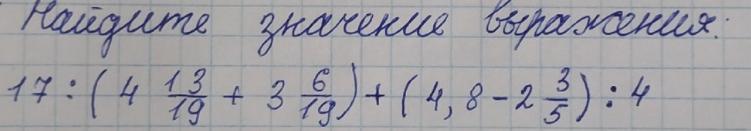 Найдите значение выражения:
17 : ( 4 13/19 + 3 6/19 ) + ( 4,8 - 2 3/5 ) : 4